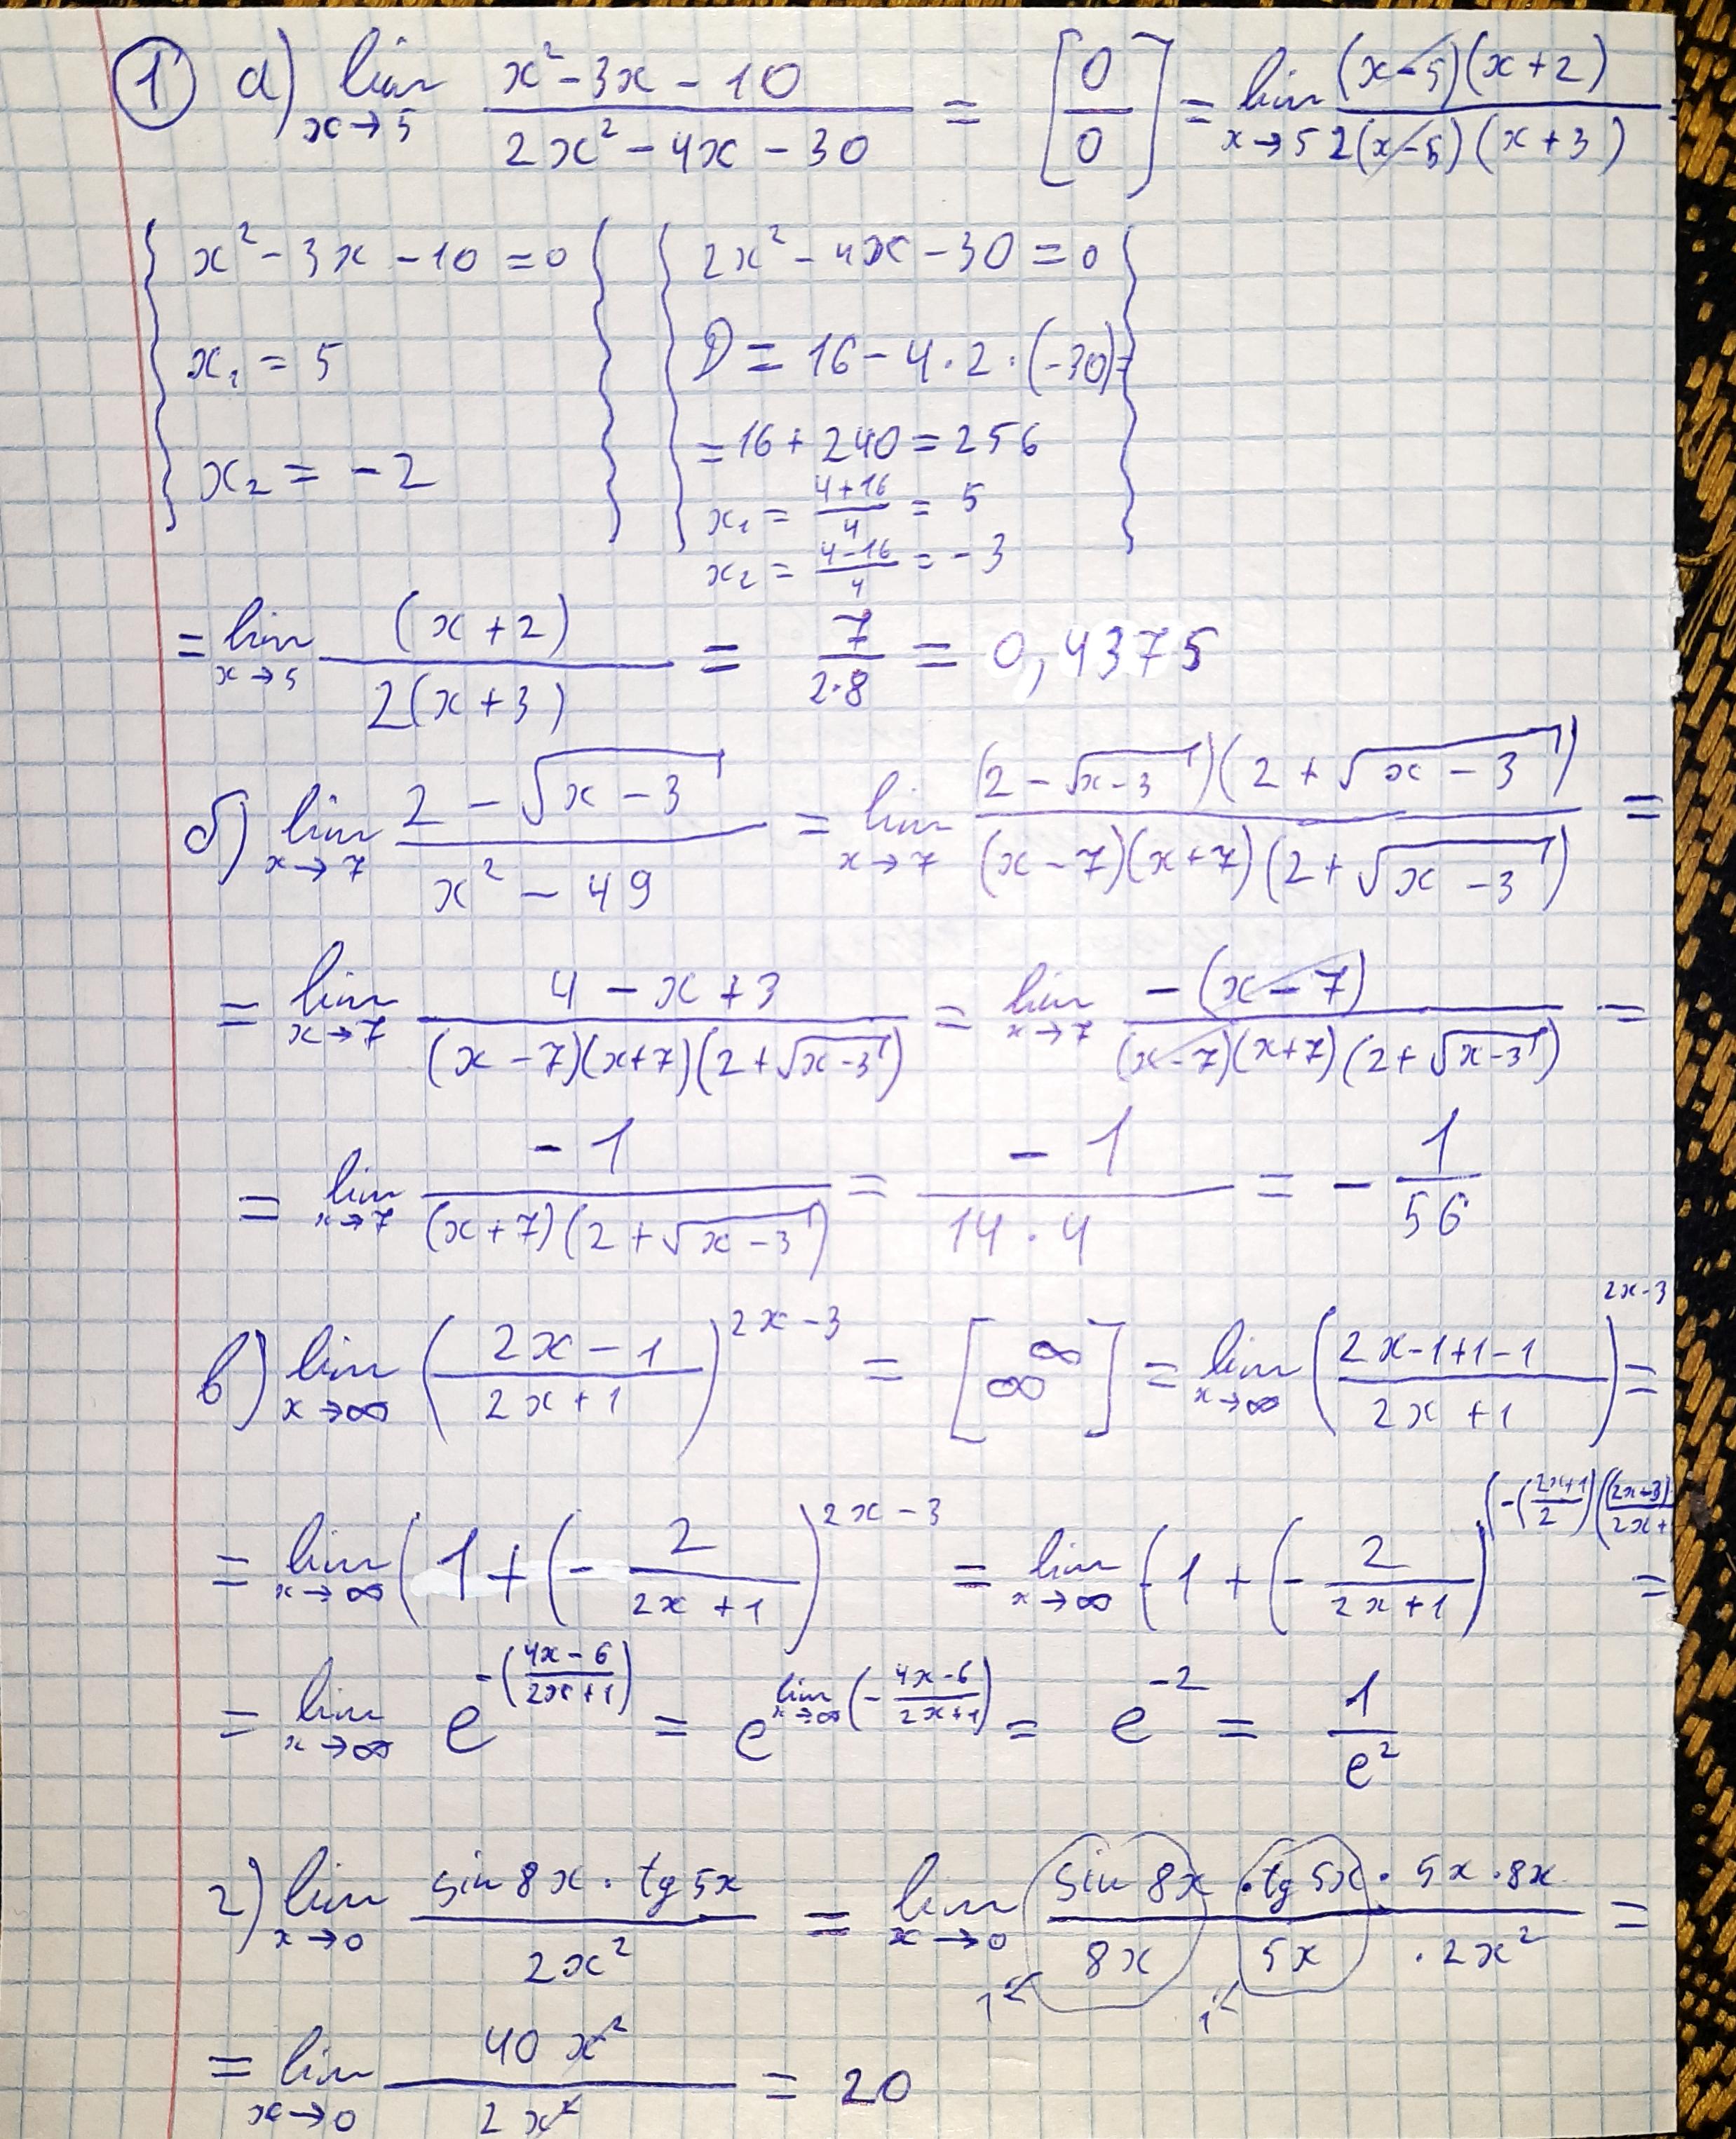 ① а) lim x→5 (x² - 3x - 10)/(2x² - 4x - 30) = [0/0] = lim x→5 ((x-5)(x+2))/(2(x-5)(x+3)) =
{ x² - 3x - 10 = 0 } { 2x² - 4x - 30 = 0 }
x₁ = 5 D = 16 - 4·2·(-30) =
= 16 + 240 = 256
x₂ = -2 x₁ = (4+16)/4 = 5
x₂ = (4-16)/4 = -3
= lim x→5 (x+2)/(2(x+3)) = 7/(2·8) = 0,4375
б) lim x→7 (2 - √(x-3))/(x² - 49) = lim x→7 ((2 - √(x-3))(2 + √(x-3)))/((x-7)(x+7)(2 + √(x-3))) =
= lim x→7 (4 - x + 3)/((x-7)(x+7)(2+√(x-3))) = lim x→7 (-(x-7))/((x-7)(x+7)(2+√(x-3))) =
= lim x→7 (-1)/((x+7)(2+√(x-3))) = (-1)/(14·4) = -1/56
в) lim x→∞ ((2x-1)/(2x+1))^(2x-3) = [∞^∞] = lim x→∞ ((2x-1+1-1)/(2x+1))^(2x-3) =
= lim x→∞ (1+(-2/(2x+1))^(2x-3) = lim x→∞ (1+(-2/(2x+1))^(-((2x+1)/2)((2x-3)/(2x+ =
= lim x→∞ e^(-((4x-6)/(2x+1))) = e^(lim x→∞ (-(4x-6)/(2x+1))) = e^(-2) = 1/e²
г) lim x→0 (sin 8x · tg 5x)/(2x²) = lim x→0 (sin 8x · tg 5x · 5x · 8x)/(8x 5x · 2x²) =
1 1
= lim x→0 (40x²)/(2x²) = 20